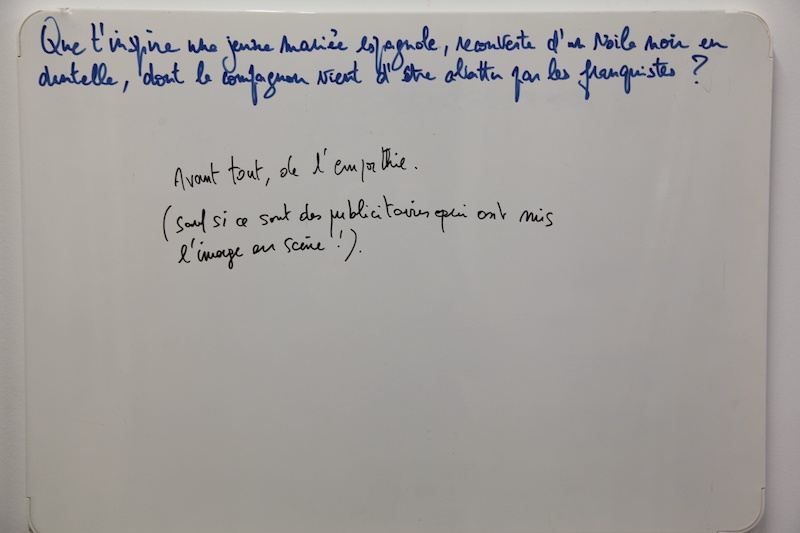 Que t'inspire une jeune mariée espagnole, recouverte d'un voile noir en
dentelle, dont le compagnon vient d'être abattu par les franquistes ?
Avant tout, de l'empathie.
(sauf si ce sont des publicitaires qui ont mis
l'image en scène !).